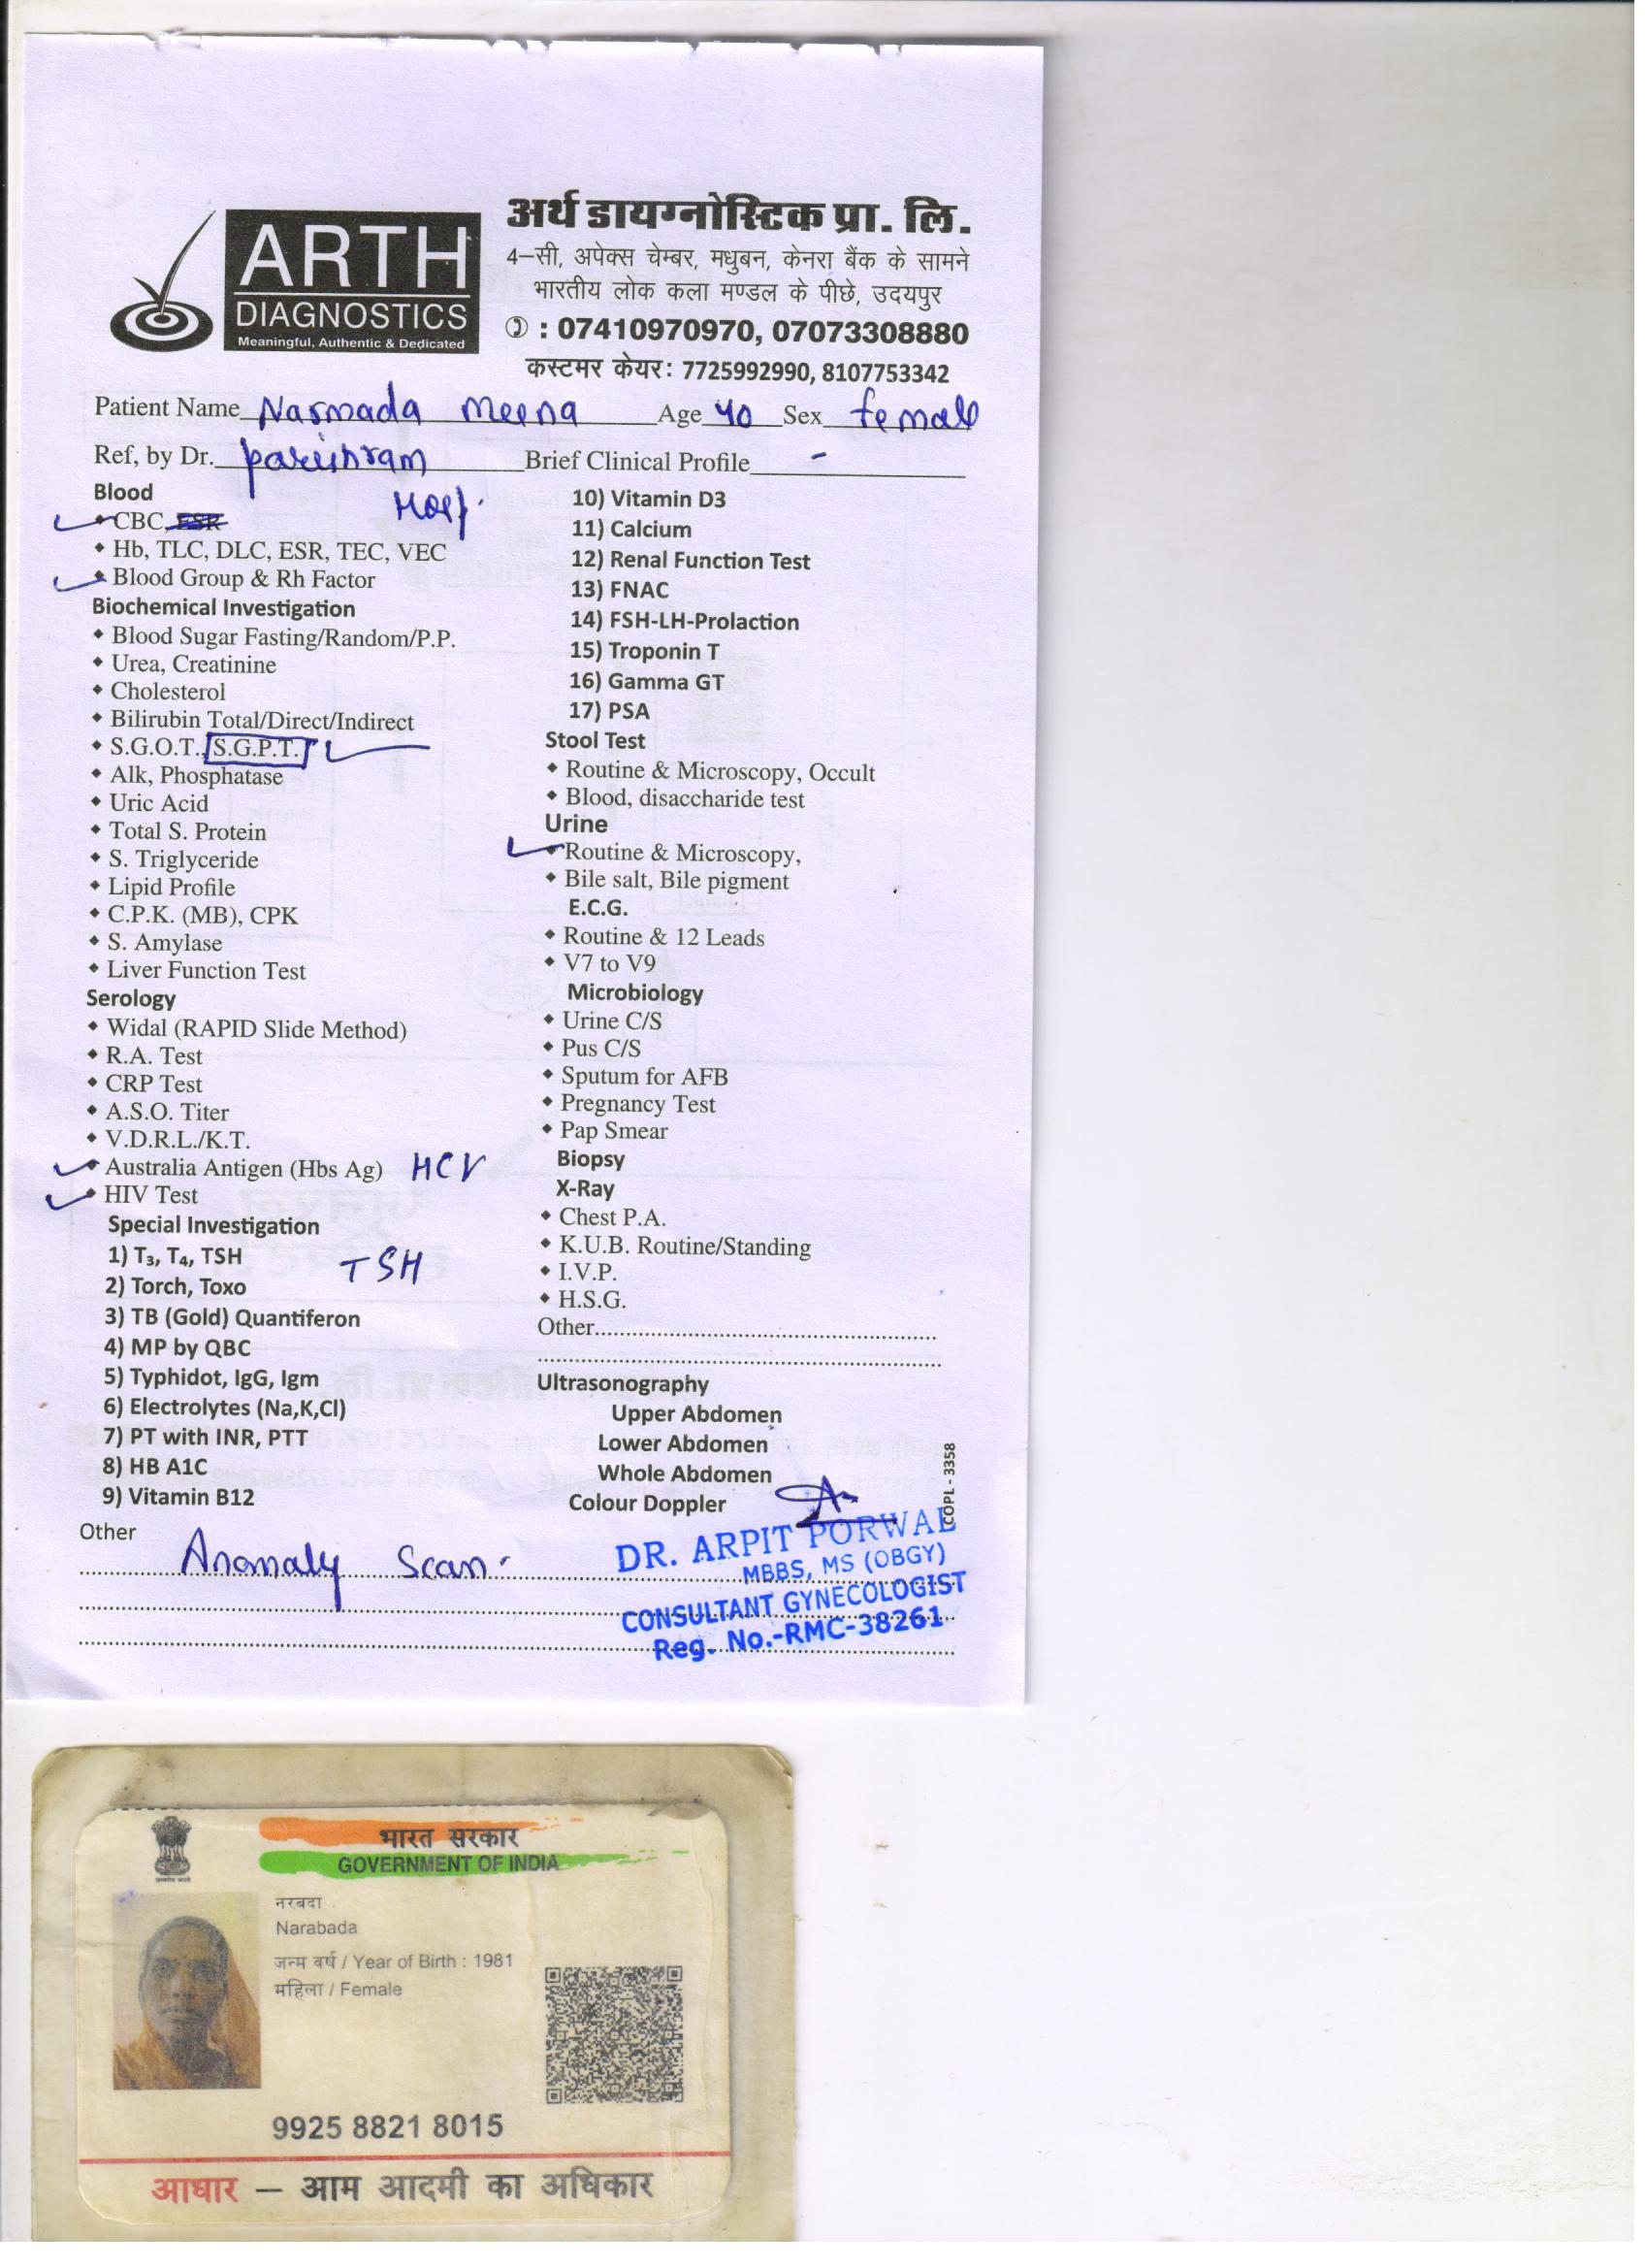 ARTH
DIAGNOSTICS
Meaningful, Authentic & Dedicated
अर्थ डायग्नोस्टिक प्रा. लि.
4–सी, अपेक्स चेम्बर, मधुबन, केनरा बैंक के सामने
भारतीय लोक कला मण्डल के पीछे, उदयपुर
: 07410970970, 07073308880
कस्टमर केयर: 7725992990, 8107753342
Patient Name Narmada Meena Age 40 Sex female
Ref, by Dr. parishram Hosp. Brief Clinical Profile -
Blood
CBC, ESR
Hb, TLC, DLC, ESR, TEC, VEC
Blood Group & Rh Factor
Biochemical Investigation
Blood Sugar Fasting/Random/P.P.
Urea, Creatinine
Cholesterol
Bilirubin Total/Direct/Indirect
S.G.O.T., S.G.P.T.
Alk, Phosphatase
Uric Acid
Total S. Protein
S. Triglyceride
Lipid Profile
C.P.K. (MB), CPK
S. Amylase
Liver Function Test
Serology
Widal (RAPID Slide Method)
R.A. Test
CRP Test
A.S.O. Titer
V.D.R.L./K.T.
Australia Antigen (Hbs Ag) HCV
HIV Test
Special Investigation
1) T₃, T₄, TSH TSH
2) Torch, Toxo
3) TB (Gold) Quantiferon
4) MP by QBC
5) Typhidot, IgG, Igm
6) Electrolytes (Na,K,Cl)
7) PT with INR, PTT
8) HB A1C
9) Vitamin B12
10) Vitamin D3
11) Calcium
12) Renal Function Test
13) FNAC
14) FSH-LH-Prolaction
15) Troponin T
16) Gamma GT
17) PSA
Stool Test
Routine & Microscopy, Occult
Blood, disaccharide test
Urine
Routine & Microscopy,
Bile salt, Bile pigment
E.C.G.
Routine & 12 Leads
V7 to V9
Microbiology
Urine C/S
Pus C/S
Sputum for AFB
Pregnancy Test
Pap Smear
Biopsy
X-Ray
Chest P.A.
K.U.B. Routine/Standing
I.V.P.
H.S.G.
Other
Ultrasonography
Upper Abdomen
Lower Abdomen
Whole Abdomen
Colour Doppler
COPL - 3358
Other
Anomaly Scan.
DR. ARPIT PORWAL
MBBS, MS (OBGY)
CONSULTANT GYNECOLOGIST
Reg. No.-RMC-38261
भारत सरकार
GOVERNMENT OF INDIA
नरबदा
Narabada
जन्म वर्ष / Year of Birth : 1981
महिला / Female
9925 8821 8015
आधार – आम आदमी का अधिकार